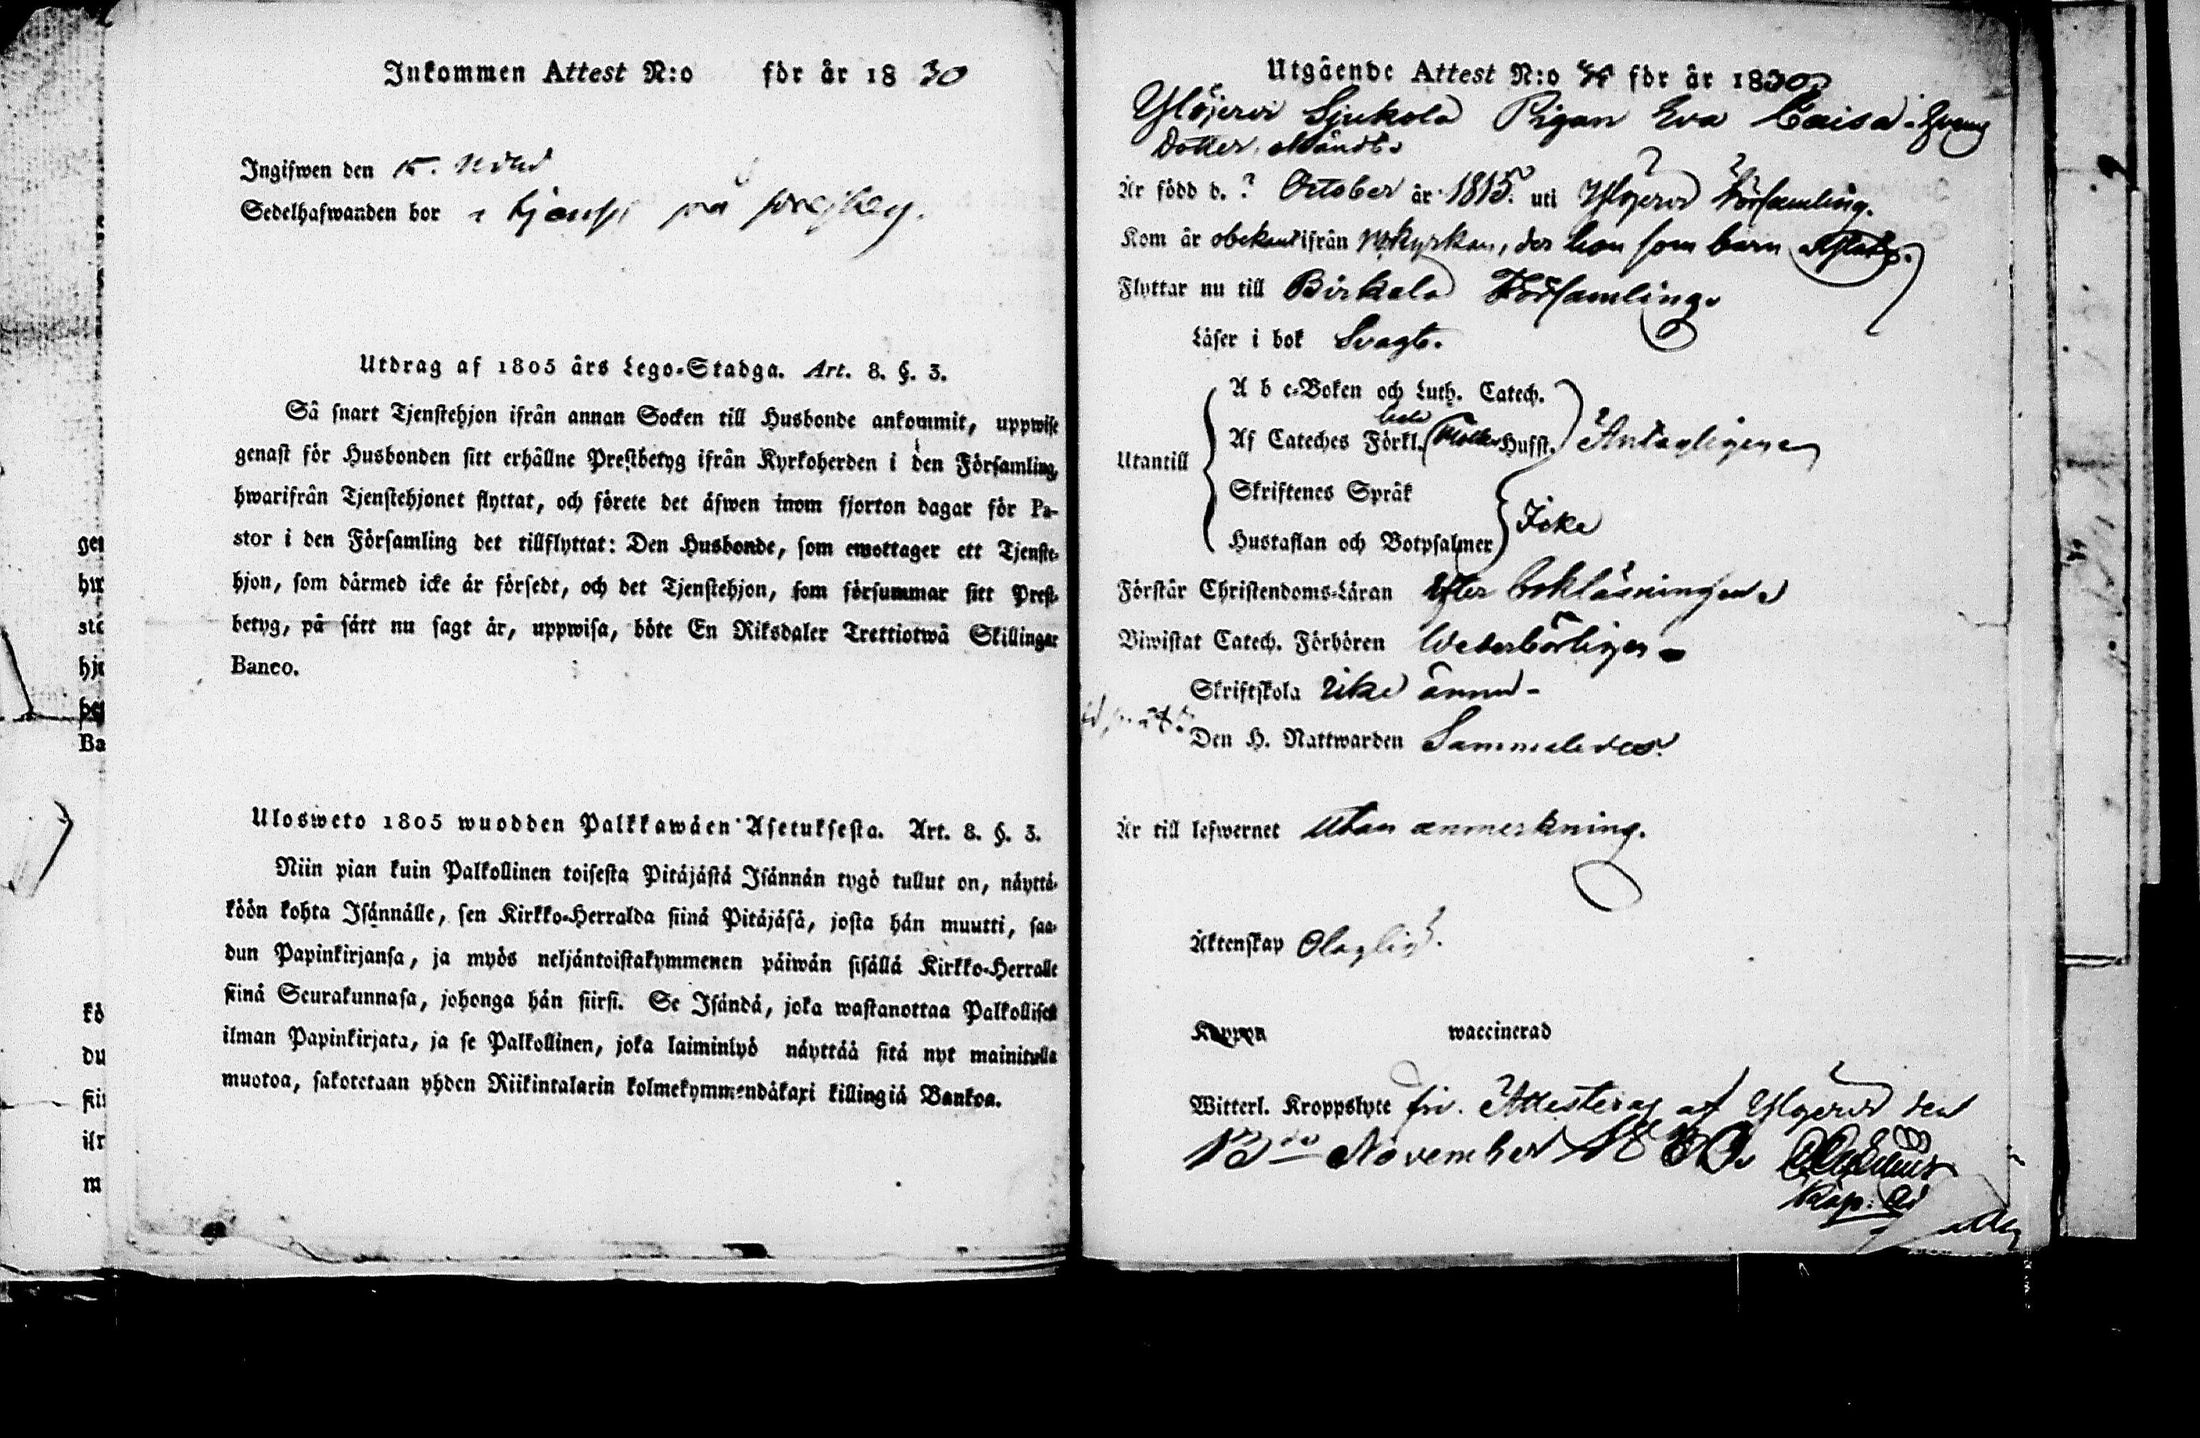 Inkommen Attest N:o för år 1830
Ingifwen den 15. Novbr
Sedelhafwanden bor i tjenst på
Utdrag af 1805 års Lego-Stadga. Art. 8. §. 3.
Så snart Tjenstehjon ifrån annan Socken till Husbonde ankommit, uppwise
genast för Husbonden sitt erhållne Prestbetyg ifrån Kyrkoherden i den Församling,
hwarifrån Tjenstehjonet flyttat, och förete det äfwen inom fjorton dagar för Pa-
stor i den Församling det tillflyttat: Den Husbonde, som emottager ett Tjenste-
hjon, som därmed icke är försedt, och det Tjenstehjon, som försummar sitt Prest-
betyg, på sätt nu sagt är, uppwisa, böte En Riksdaler Trettiotwå Skillingar
Banco.
Ulosweto 1805 wuodden Palkkawäen Asetuksesta. Art. 8. §. 3.
Niin pian kuin Palkollinen toisesta Pitäjästä Isännän tygö tullut on, näyttä-
köön kohta Isännälle, sen Kirkko-Herralda siinä Pitäjäsä, josta hän muutti, saa-
dun Papinkirjansa, ja myös neljäntoistakymmenen päiwän sisällä Kirkko-Herralle
siinä Seurakunnasa, johonga hän siirsi. Se Isändä, joka wastanottaa Palkollisen
ilman Papinkirjata, ja se Palkollinen, joka laiminlyö näyttää sitä nyt mainitulla
muotoa, sakotetaan yhden Riikintalarin kolmekymmendäkaxi killingiä Bankoa.
Utgående Attest N:o för år 1830
Ylöjervi Sjukola Pigan Eva Caisa
Dotter,
Är född d. ? October år 1815. uti Ylöjervi Församling.
Kom år obekant ifrån kyrkan, der hon som barn
Flyttar nu till Birkala Församling.
Läser i bok Svagt.
Utantill
A b c-Boken och Luth. Catech.
Af Cateches Förkl. Hufst. Antagligen
Skriftenes Språk
Hustaflan och Botpsalmer Icke
Förstår Christendoms-Läran efter bokläsningen
Biwistat Catech. Förhören Wederbörligen
Skriftskola icke ännu
Den H. Nattwarden Sammaledes.
Är till lefwernet utan anmerkning.
Äktenskap Olaglig.
Koppon waccinerad
Witterl. Kroppslyte fri. Attesteras af Ylöjervi den
13de November 1830.
Kap: